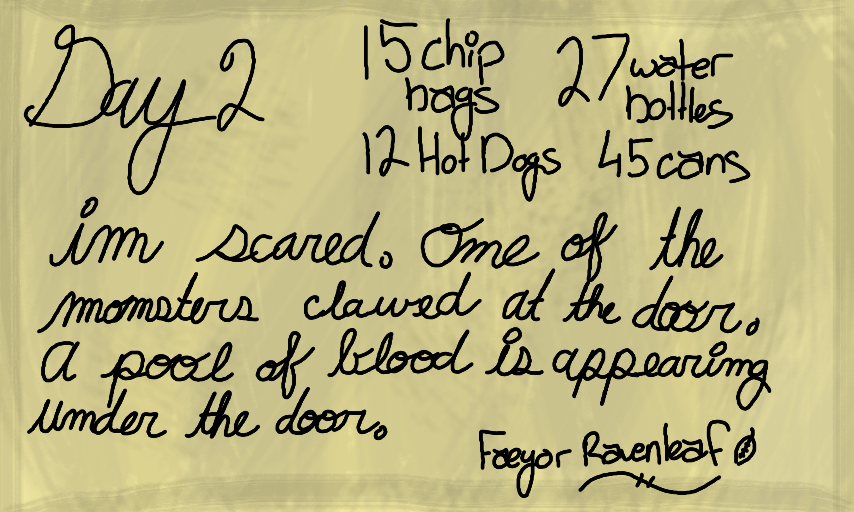 Day 2
15 chip bags
27 water bottles
12 Hot Dogs
45 cans
im scared. One of the
monsters clawed at the door.
A pool of blood is appearing
under the door.
Faeyor Ravenleaf